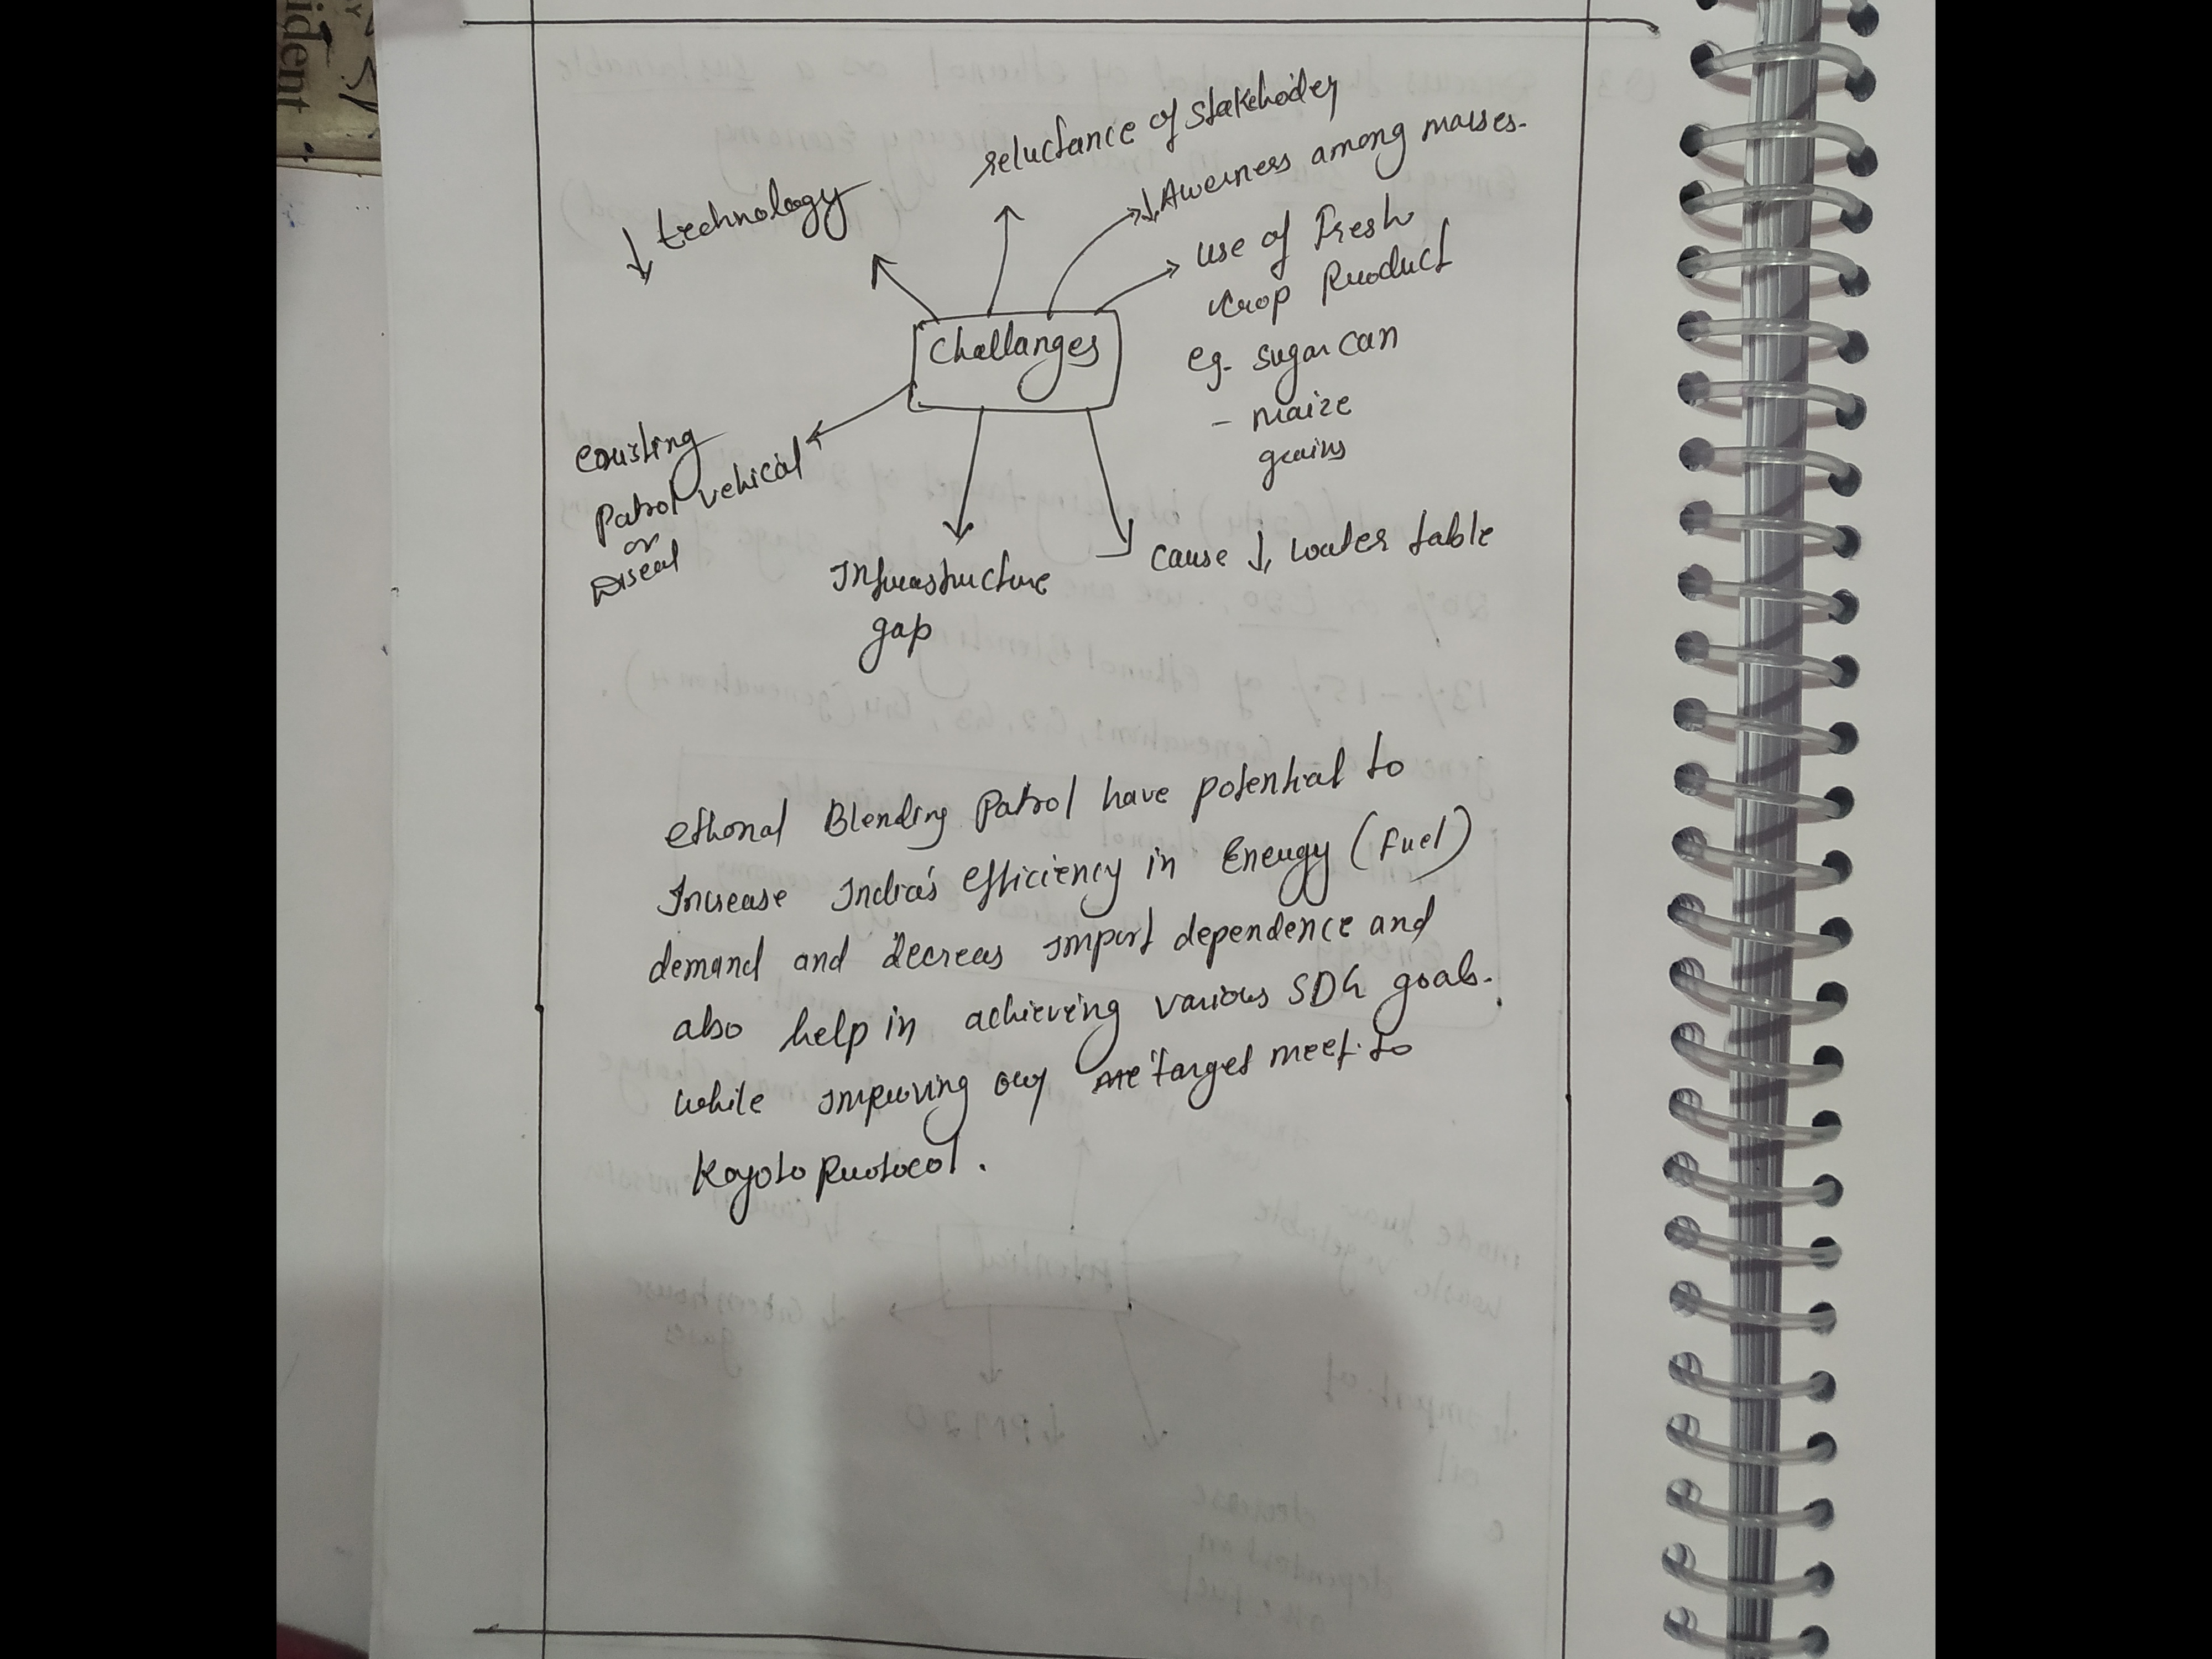 ident
reluctance of stakehoder
↓ Awerness among masses.
↓ technology
use of Fresh
crop Product
eg. sugarcan
- maize
grains
Challanges
Patrol vehical
or
Diseal
Infrastructure
gap
cause ↓ water table
ethonal Blending Patrol have potential to
Increase India's efficiency in Energy (Fuel)
demand and decreas import dependence and
also help in achieving various SDG goals.
while improving our target meet to
Koyoto Protocol.